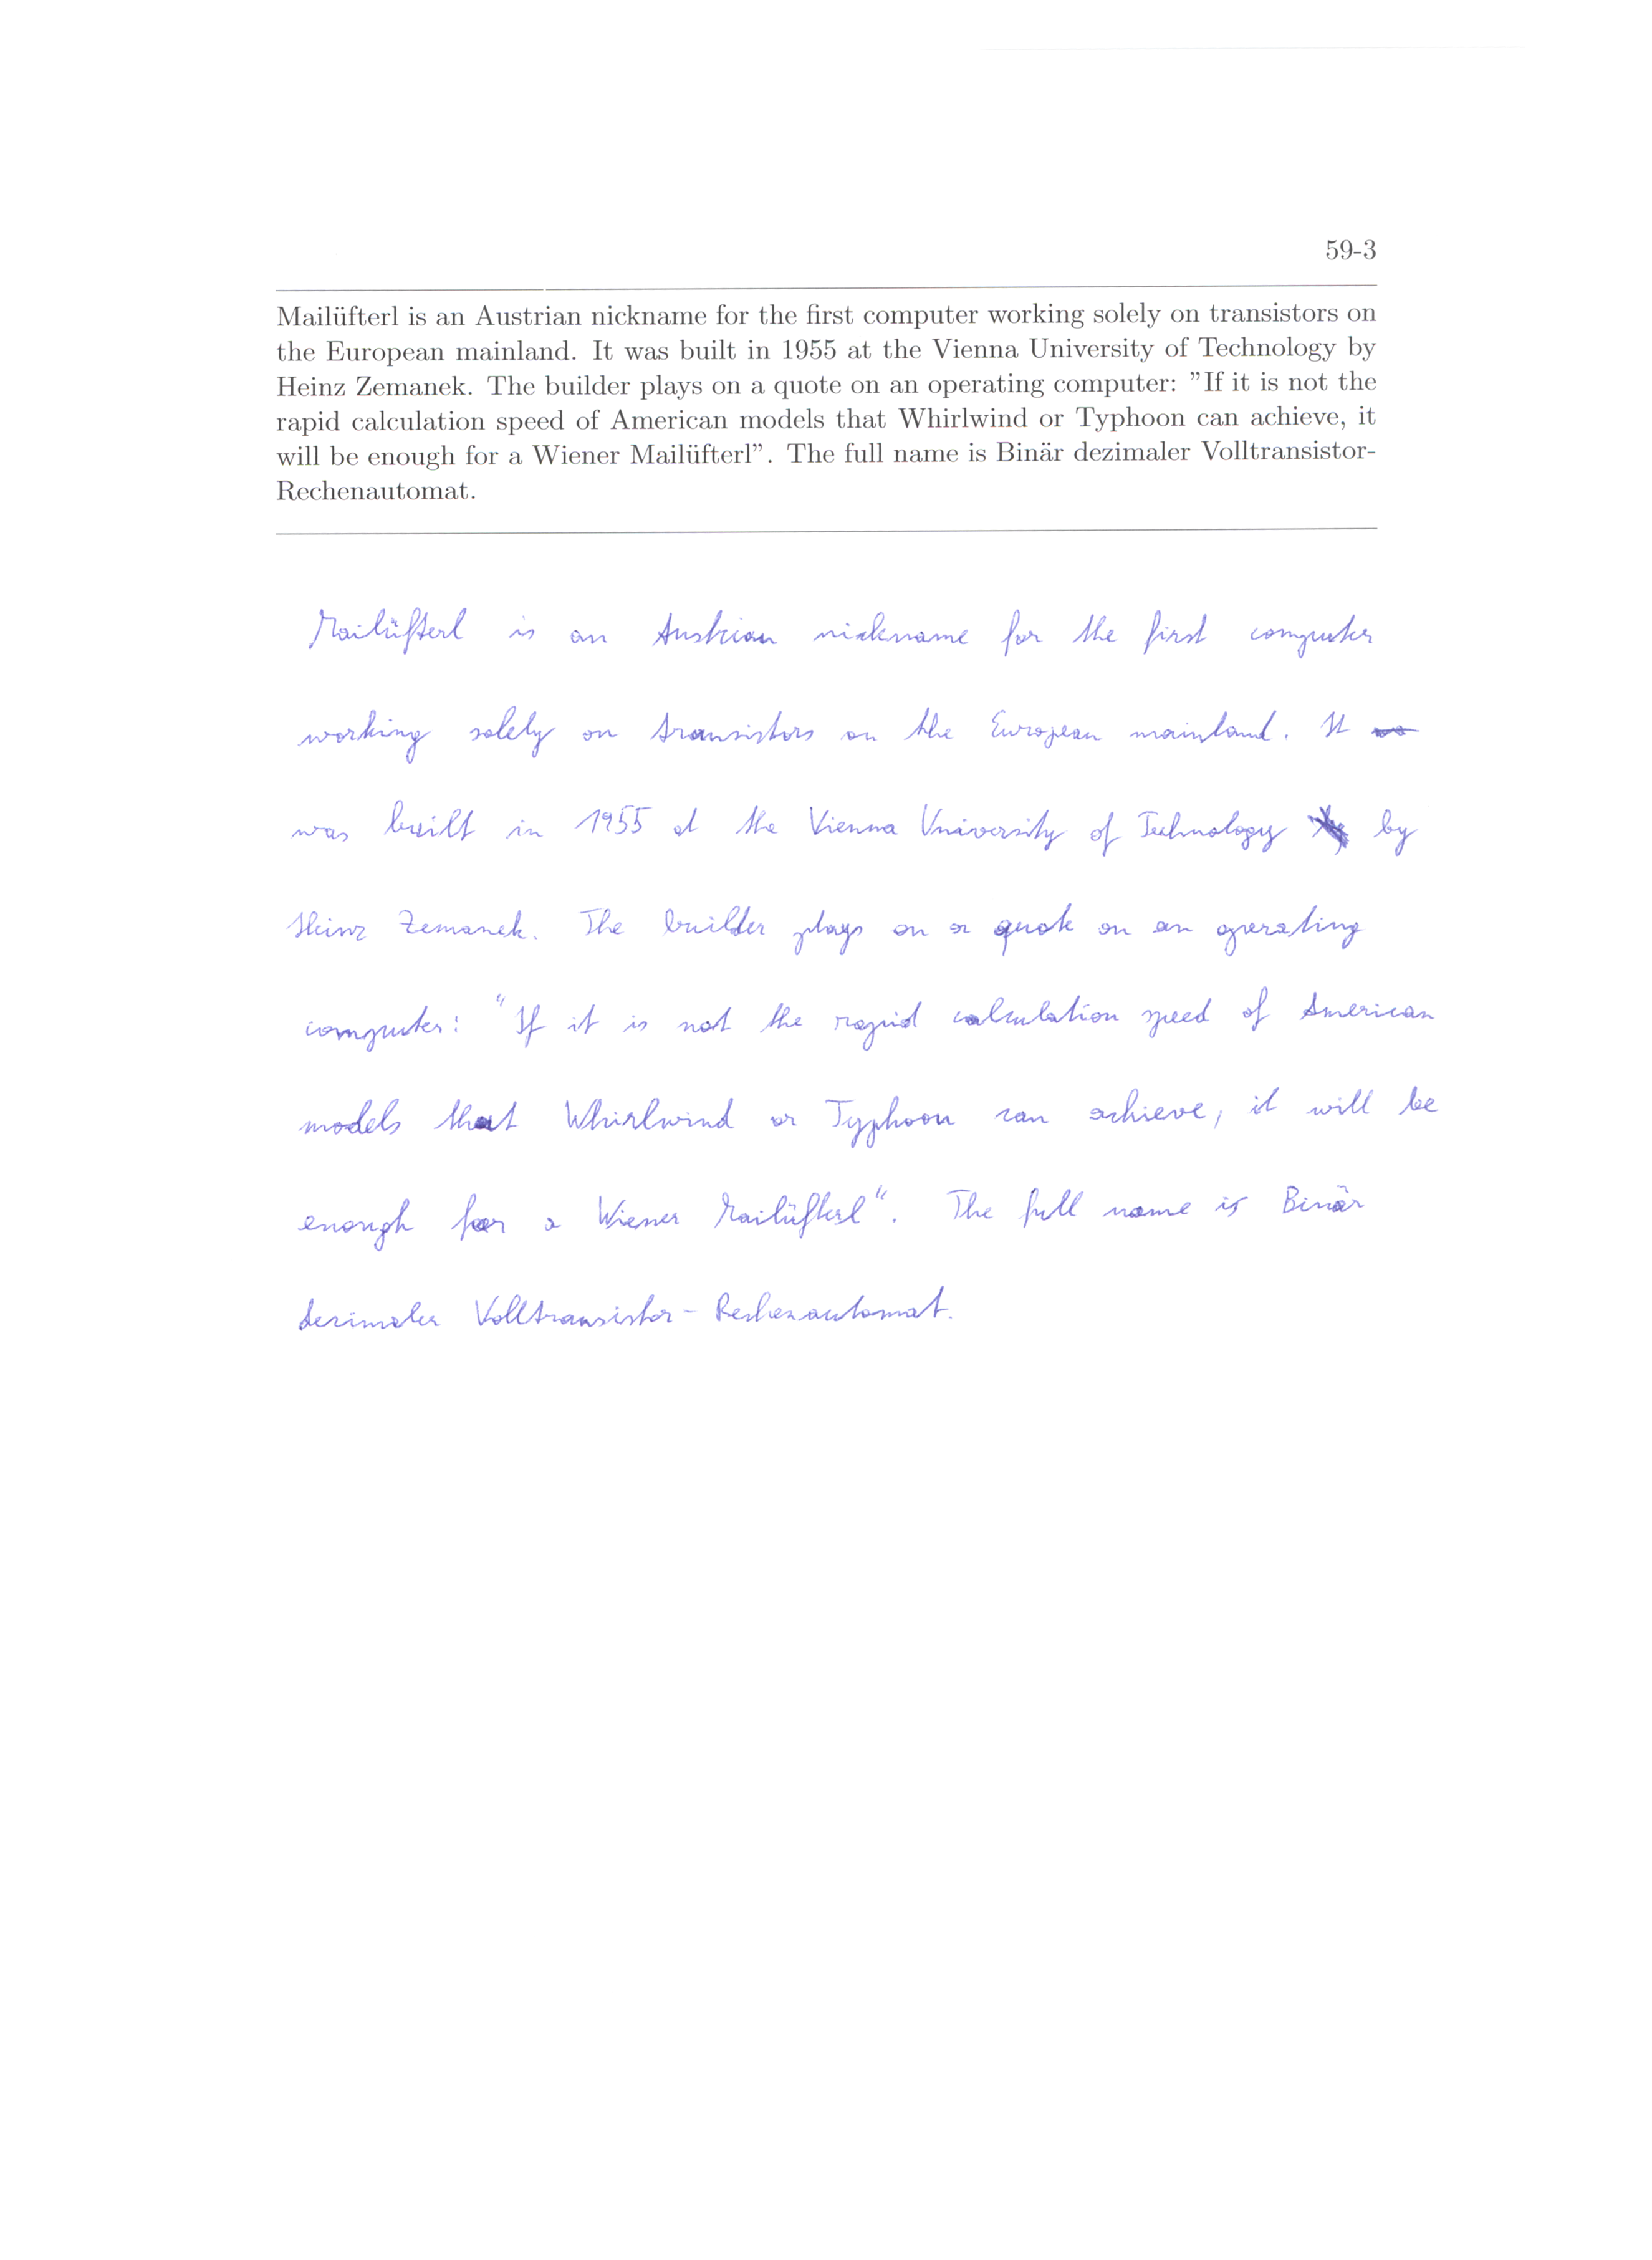 59-3
Mailüfterl is an Austrian nickname for the first computer working solely on transistors on
the European mainland. It was built in 1955 at the Vienna University of Technology by
Heinz Zemanek. The builder plays on a quote on an operating computer: ”If it is not the
rapid calculation speed of American models that Whirlwind or Typhoon can achieve, it
will be enough for a Wiener Mailüfterl”. The full name is Binär dezimaler Volltransistor-
Rechenautomat.
Mailüfterl is an Austrian nickname for the first computer
working solely on transistors on the European mainland. It
was built in 1955 at the Vienna University of Technology by
Heinz Zemanek. The builder plays on a quote on an operating
computer: "If it is not the rapid calculation speed of American
models that Whirlwind or Typhoon can achieve, it will be
enough for a Wiener Mailüfterl". The full name is Binär
dezimaler Volltransistor-Rechenautomat.